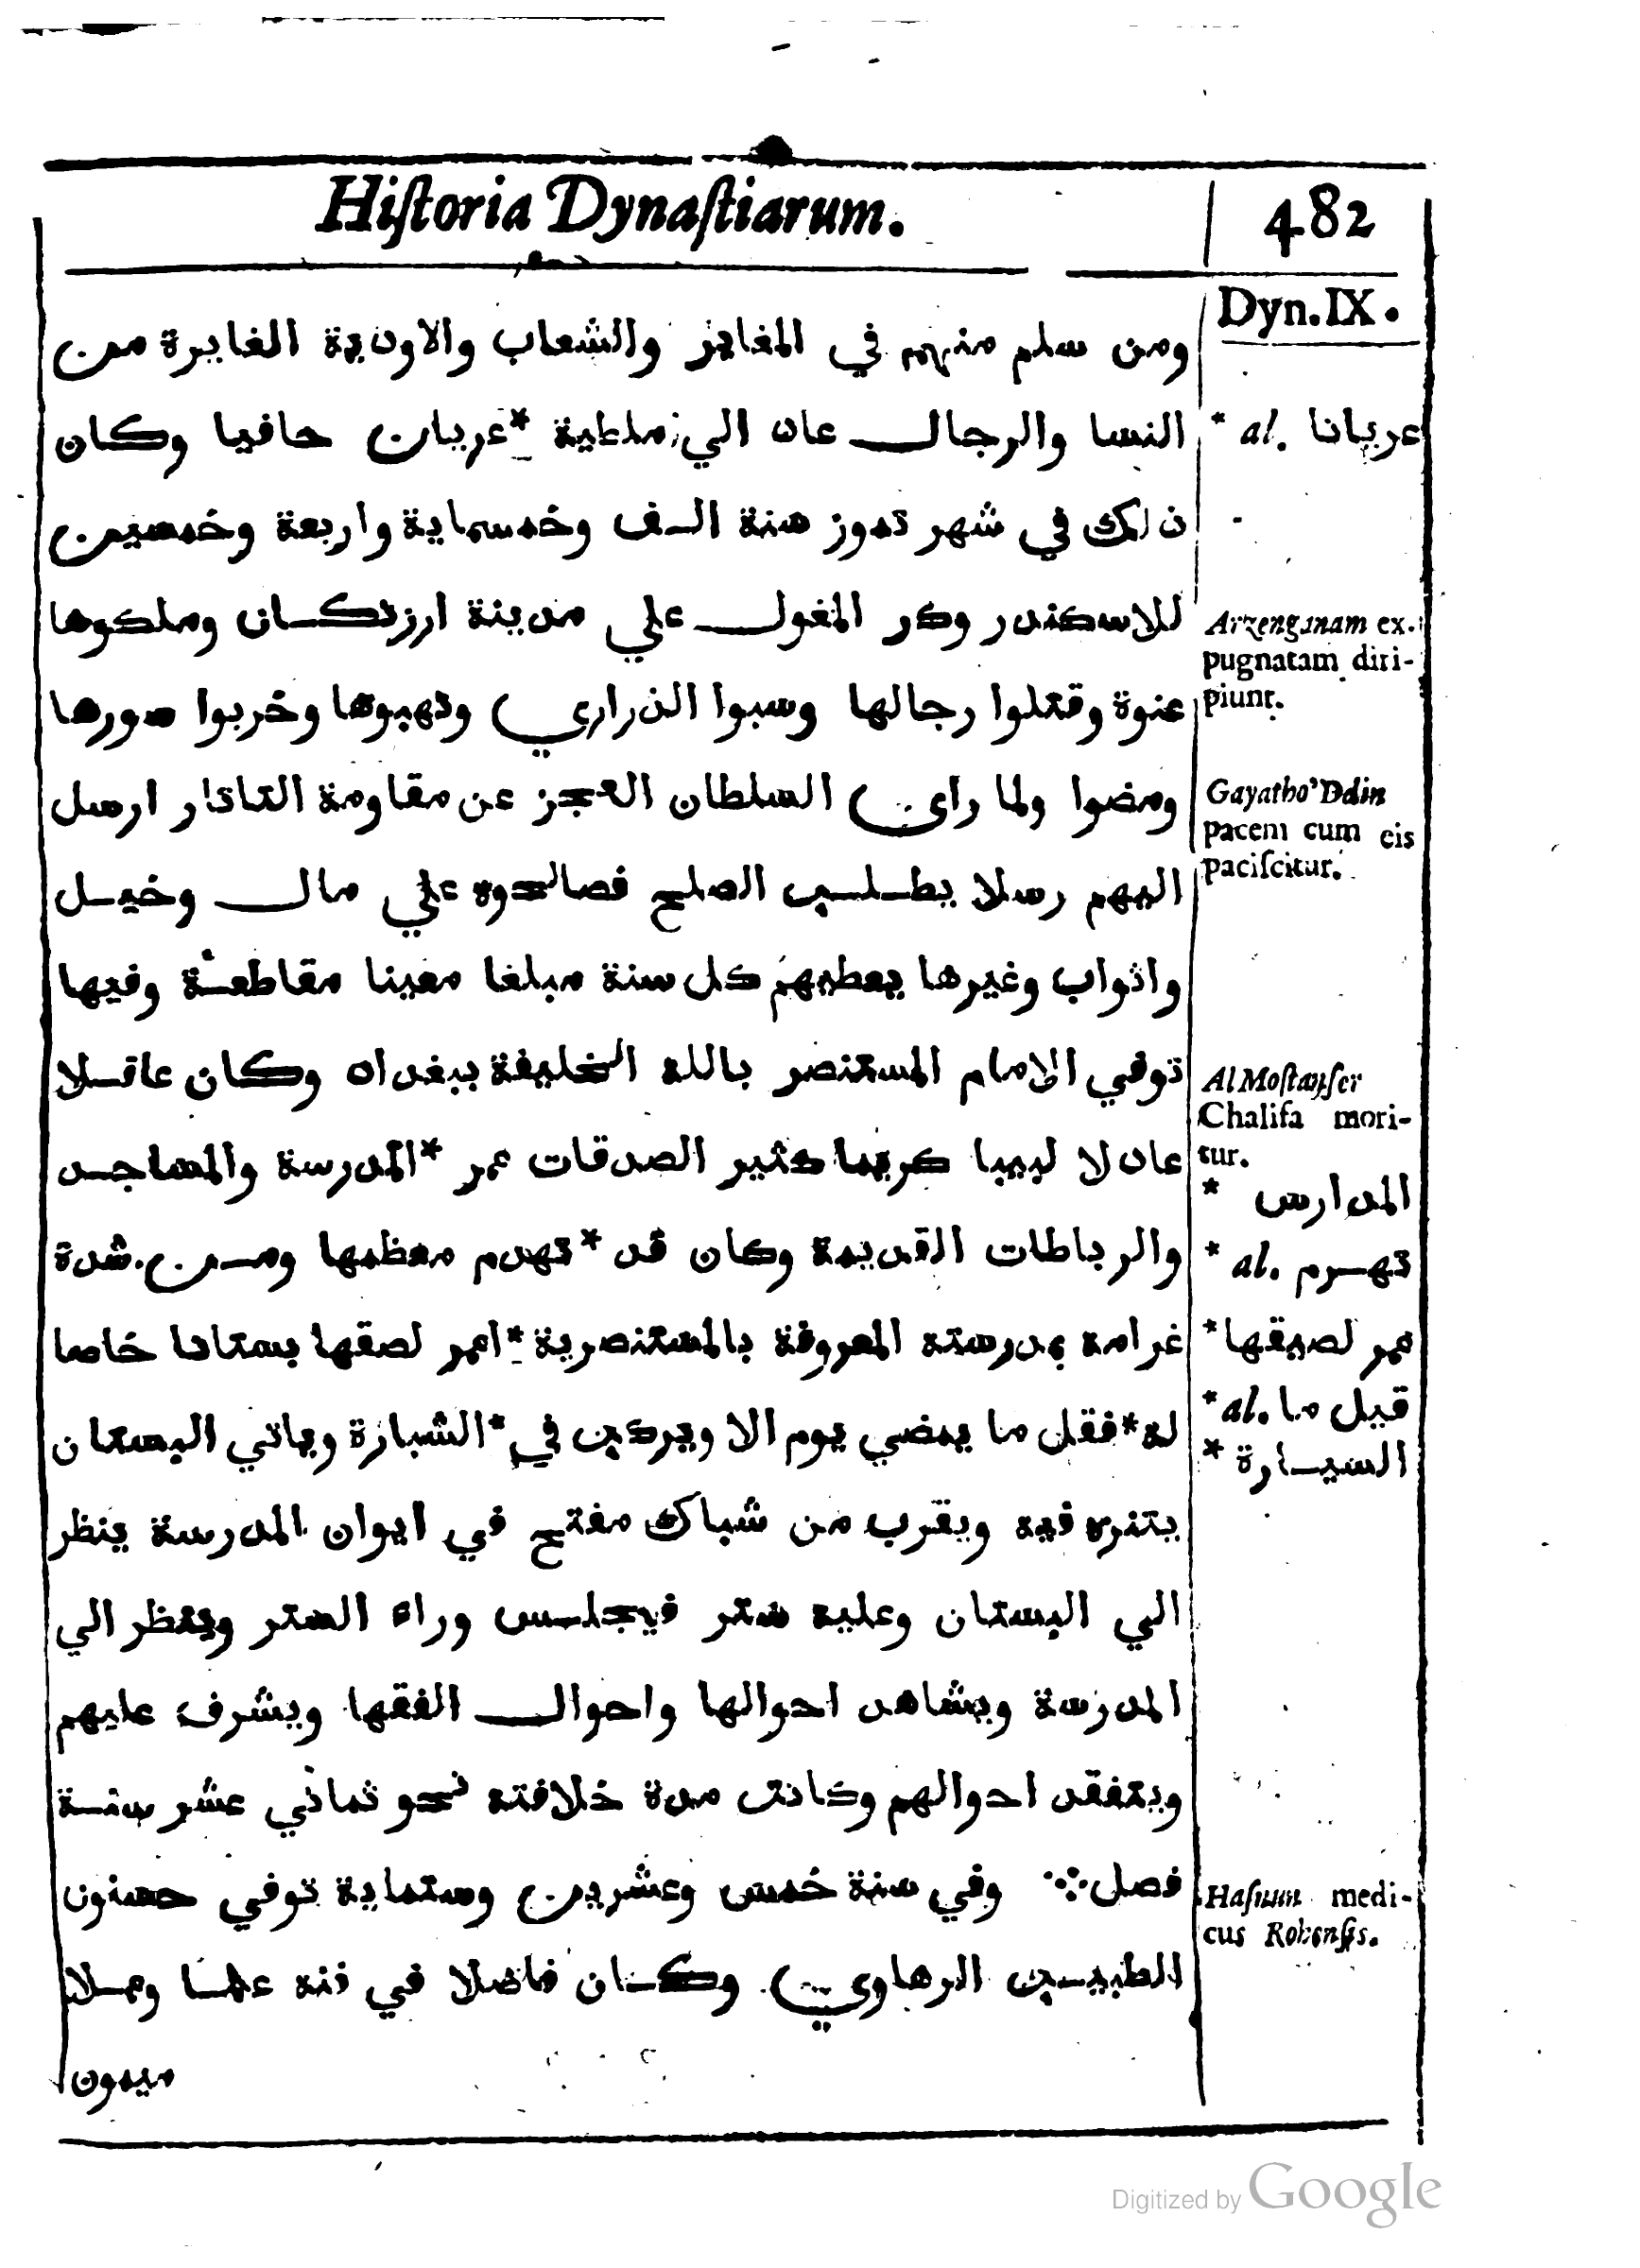 Hiſtoria Dynaſtiarum.
482
Dyn.IX.
ومن سلم منهم في المغاير والشعاب والاودية الغايرة من
النسا والرجال عاد الي ملطية *عريان حافيا وكان
ذلك في شهر تموز سنة الف وخمسماية واربعة وخمسين
للاسكندر وكر المغول علي مدينة ارزنكان وملكوها
عنوة وقتلوا رجالها وسبوا الذراري ونهبوها وخربوا سورها
ومضوا ولما راي السلطان العجز عن مقاومة التاتار ارسل
اليهم رسلا يطلب الصلح فصالحوه علي مال وخيل
واثواب وغيرها يعطيهم كل سنة مبلغا معينا مقاطعة وفيها
توفي الامام المستنصر بالله الخليفة ببغداد وكان عاقلا
عادلا لبيبا كريما كثير الصدقات عمر *المدرسة والمساجد
والرباطات القديمة وكان قد *تهدم معظمها ومن شدة
غرامه بمدرسته المعروفة بالمستنصرية *اعمر لصقها بستانا خاصا
له *فقل ما يمضي يوم الا ويركب في *الشبارة وياتي البستان
يتنزه فيه ويقرب من شباك مفتح في ايوان المدرسة ينظر
الي البستان وعليه ستر فيجلس وراء الستر وينظر الي
المدرسة ويشاهد احوالها واحوال الفقها ويشرف عليهم
ويتفقد احوالهم وكانت مدة خلافته نحو ثماني عشر سنة
فصل وفي سنة خمس وعشرين وستماية توفي حسنون
الطبيب الرهاوي وكان فاضلا في فنه علما وعملا
ميمون
* al. عريانا
Arzenganam ex-
pugnatam diri-
piunt.
Gayatho'Ddin
pacem cum eis
paciſcitur.
Al Moſtanſer
Chalifa mori-
tur.
* المدارس
* al. تهرم
* عمر لصيقها
* al. قبل ما
* السيارة
Haſnun medi-
cus Rohenſis.
Digitized by Google